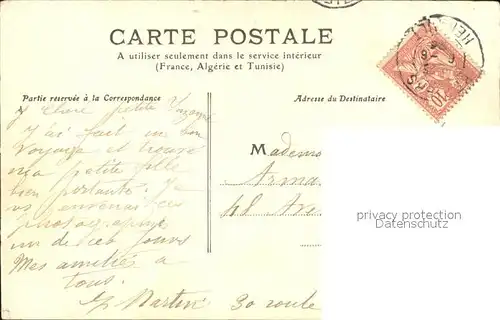 CARTE POSTALE
A utiliser seulement dans le service intérieur
(France, Algérie et Tunisie)
Partie réservée à la Correspondance
Adresse du Destinataire
chère petite Suzanne
J'ai fait un bon
voyage et trouvé
ma petite fille
bien portante. Je
vs enverrai ces
photographie
un de ces jours
Mes amitiés a
tous.
Martin 30 route
Mademo
Arma
privacy protection
Datenschutz
10